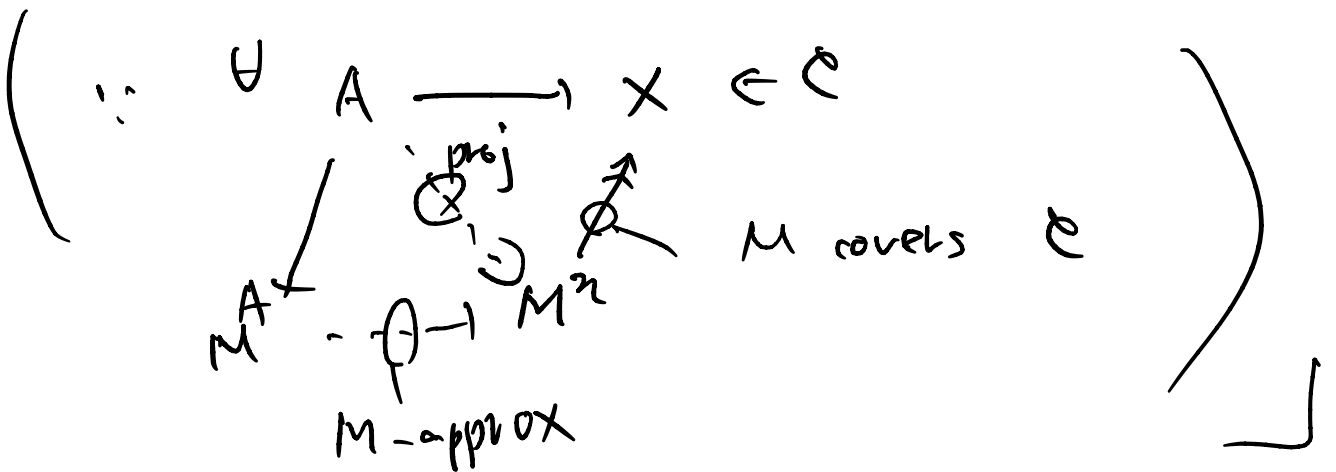 ( ∵ ∀ A → X ∈ C )
proj
M covers C
M^A → M^n
M-approx